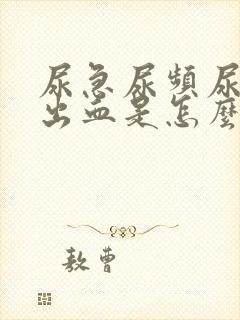 尿急尿頻尿
出血是怎麼
敖曹